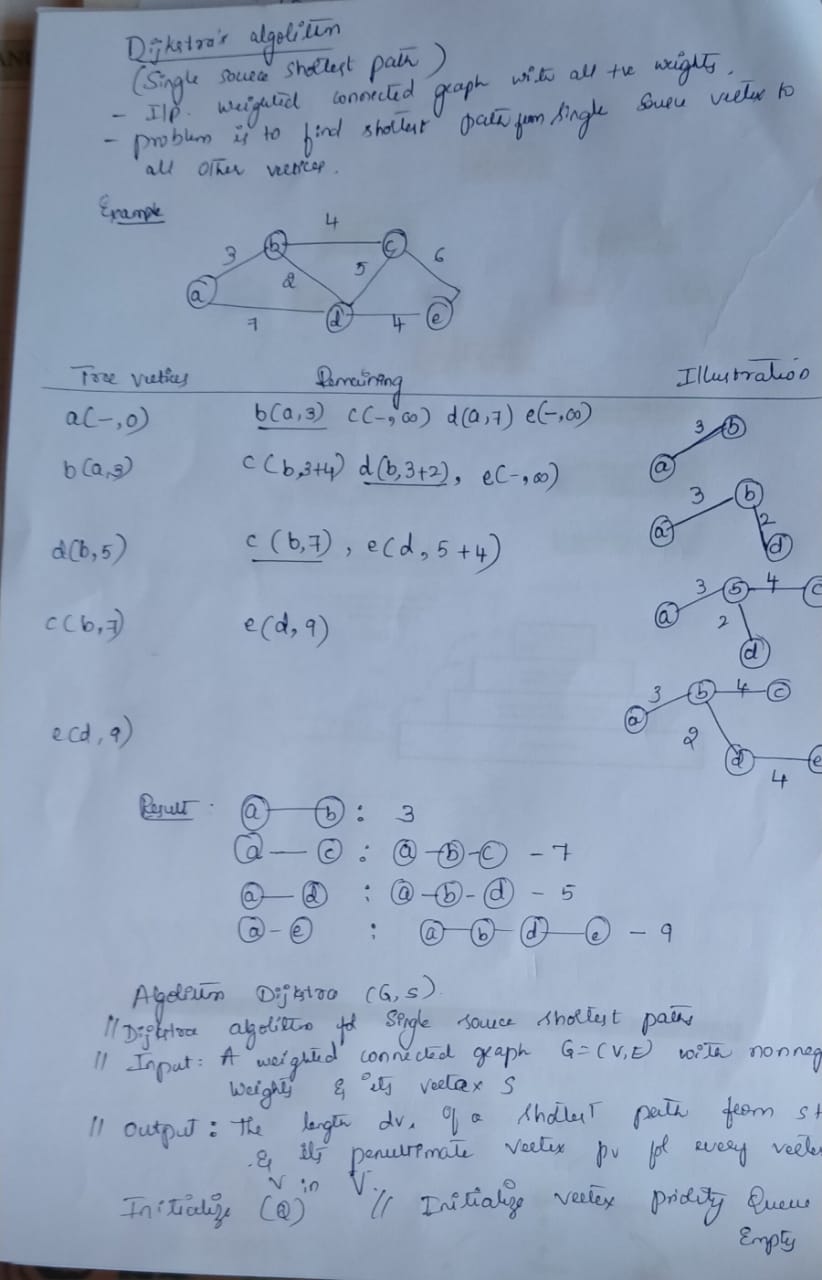 Dijkstra's algorithm
(Single source shortest path)
- I/P. weighted connected graph with all +ve weights.
- problem is to find shortest path from single source vertex to
all other vertices.
Example
4
3 b c 6
2 5
a
7 d 4 e
Tree vertices Remaining Illustration
a(-,0) b(a,3) c(-,∞) d(a,7) e(-,∞)
3 b
a
b(a,3) c(b,3+4) d(b,3+2), e(-,∞)
3 b
a 2
d
d(b,5) c(b,7), e(d,5+4)
3 b 4 c
a 2
d
c(b,7) e(d,9)
3 b 4 c
a
2
d e
4
e(d,9)
Result: a b : 3
a - c : a - b - c - 7
a - d : a - b - d - 5
a - e : a - b - d - e - 9
Algorithm Dijkstra (G,S)
// Dijkstra algorithm for single source shortest paths
// Input: A weighted connected graph G=(V,E) with nonneg
weights & its vertex S
// Output: The length dv, of a shortest path from s t
& its penultimate vertex pv for every verte
v in V.
Initialize (Q) // Initialize vertex priority Queue
Empty